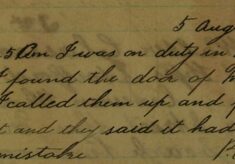 5 Aug
5 am I was on duty in
I found the door of
I called them up and
t and they said it had
mistake